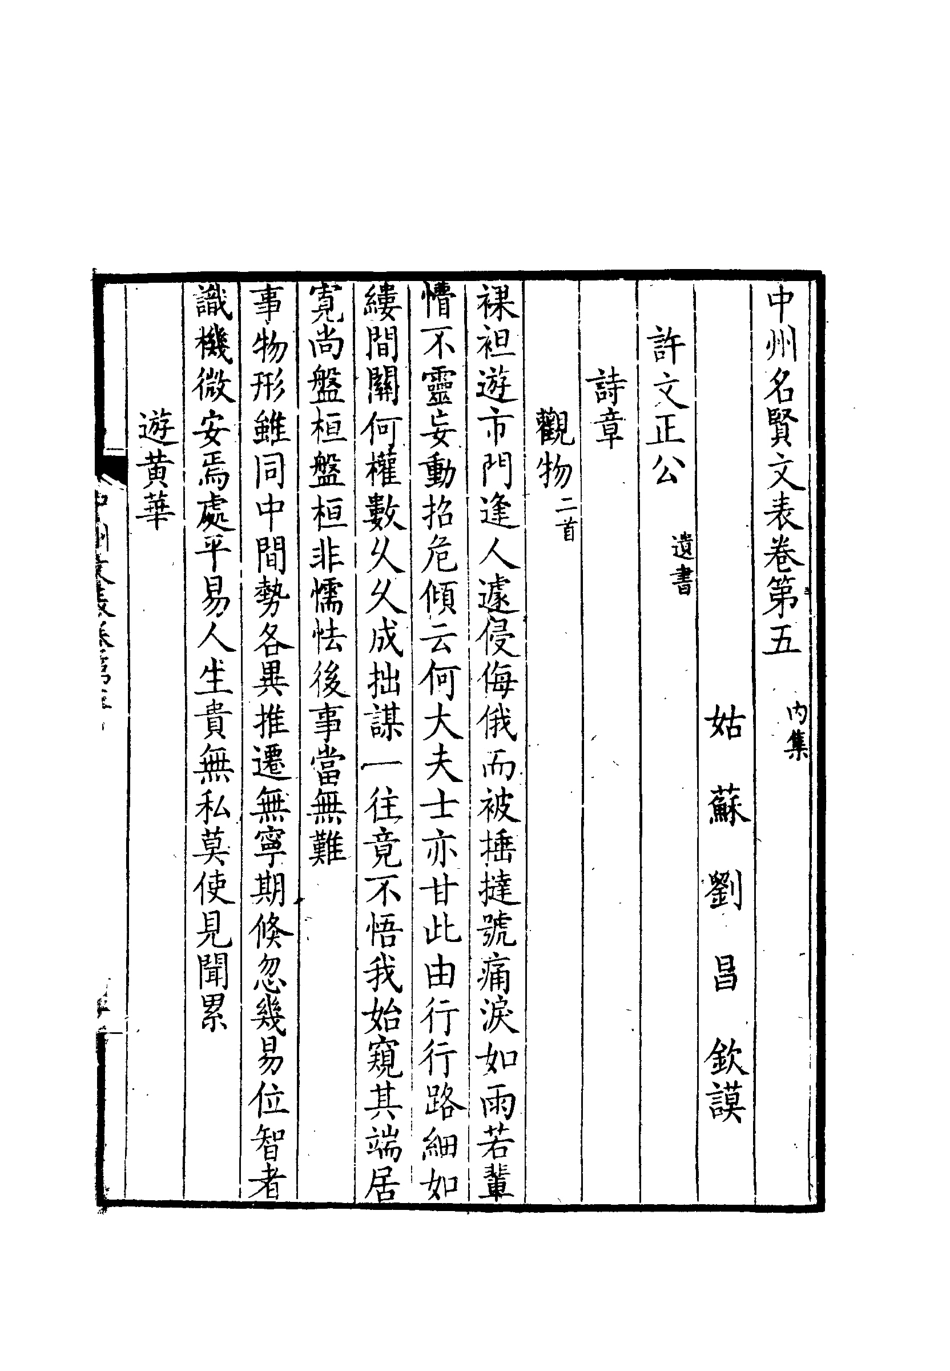 中州名賢文表卷第五 内集
姑蘇劉昌欽謨
許文正公 遺書
詩章
觀物二首
裸袒遊市門逢人遽侵侮俄而被捶撻號痛淚如雨若輩
懵不靈妄動招危傾云何大夫士亦甘此由行行路細如
縷間關何權數久久成拙謀一往竟不悟我始窺其端居
寛尚盤桓盤桓非懦怯後事當無難
事物形雖同中間勢各異推遷無寧期倏忽幾易位智者
識機微安焉處平易人生貴無私莫使見聞累
遊黄華